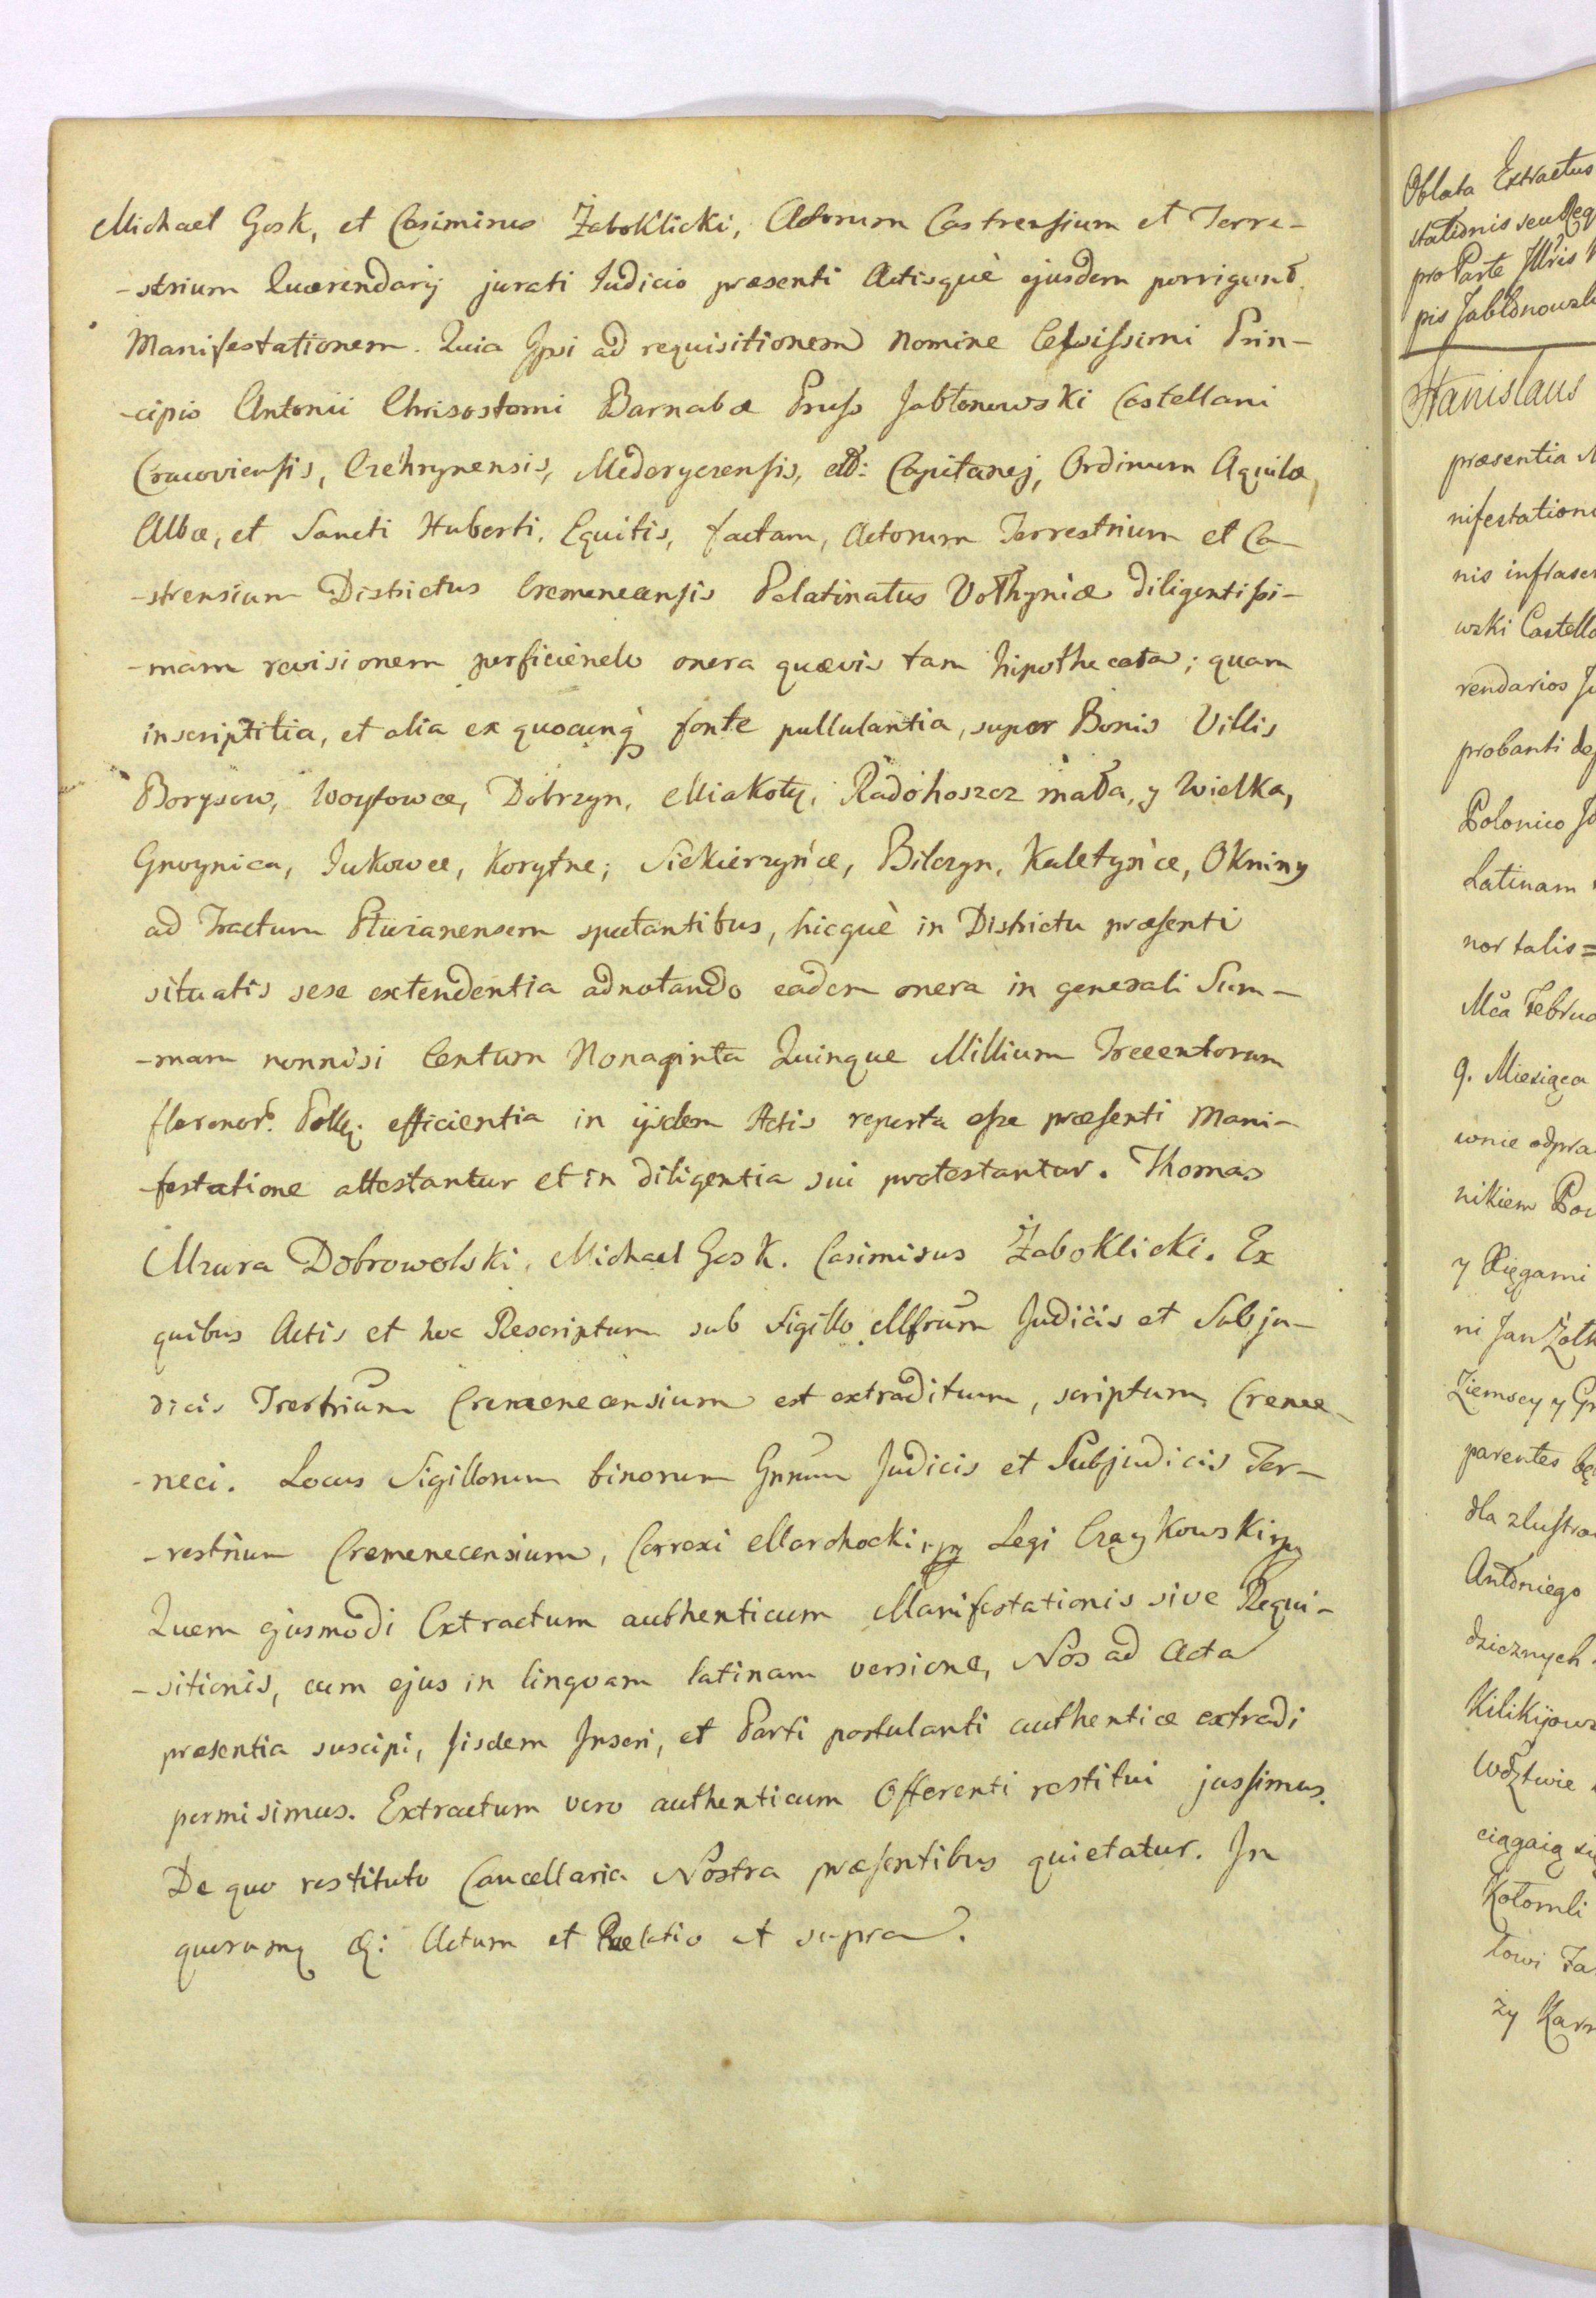 Michael Gosk, et Casimirus Żaboklicki, Actorum Castrensium et Terre-
-strium Quærendarij jurati Iudicio præsenti Actisquè ejusdem porrigunt
Manifestationem. Quia Ipsi ad requisitionem Nomine Celsissimi Prin-
-cipis Antonii Chrisostomi Barnabæ Pruss Jabłonowski Castellani
Cracoviensis, Czehrynensis, Mederycensis, ett: Capitanej, Ordinum Aquilæ
Albæ, et Sancti Huberti, Equitis, factam, Actorum Terrestrium et Ca-
-strensium Districtus Cremenecensis Palatinatus Volhyniæ diligentissi-
-mam revisionem perficiendo onera quævis tam hipothecata; quam
inscriptitia, et alia ex quocunq fonte pullulantia, super Bonis Villis
Borysow, Woytowce, Dobrzyn, Miakoty, Radohoszcz mała, y Wielka,
Gnoynica, Jukowce, Korytne, Siekierzyńce, Bilczyn, Kaletyńce, Okniny
ad Tractum Pluzanensem spectantibus, hicquè in Districtu præsenti
situatis sese extendentia adnotando eadem onera in generali Sum-
-mam nonnisi Centum Nonaginta Quinque Millium Trecentorum
florenor. Pollq. efficientia in ijsdem Actis reperta esse præsenti Mani-
-festatione attestantur et in diligentia sui protestantur. Thomas
Mzura Dobrowolski. Michael Gosk. Casimirus Żaboklicki. Ex
quibus Actis et hoc Rescriptum sub Sigillo Mfrum Judicis et Subju-
dicis Trestrium Cremenecensium est extraditum, scriptum Creme-
-neci. Locus Sigillorum binorum Gnrum Judicis et Subjudicis Ter-
-restrium Cremenecensium, Correxi Marchocki mp Legi Czaykowski mp
Quem ejusmodi Extractum authenticum Manifestationis sive Requi-
-sitionis, cum ejus in linguam latinam versione, Nos ad Acta
præsentia suscipi, Iisdem Inseri, et Parti postulanti authentice extradi
permisimus. Extractum vero authenticum Offerenti restitui jussimus.
De quo restituto Cancellaria Nostra præsentibus quietatur. In
quorum q: Actum et Relatio ut supra.
Oblata Extractus
stationis seu Req
pro Parte Illris
pis Jabłonowsk
Stanislaus
præsentia M
nifestatione
nis infrascr
wski Castella
rendarios Ju
probanti de
Polonico Id
Latinam
nor talis =
Mca Februa
9. Miesiąca
wnie odpra
nikiem Pow
y Xięgami
ni Jan Żołk
Ziemscy y Gr
parentes bę
dla zlustro
Antoniego
dzicznych
Kilikijows
Wdztwie
ciągaią się
Kołomli
łowi Za
ży Karn